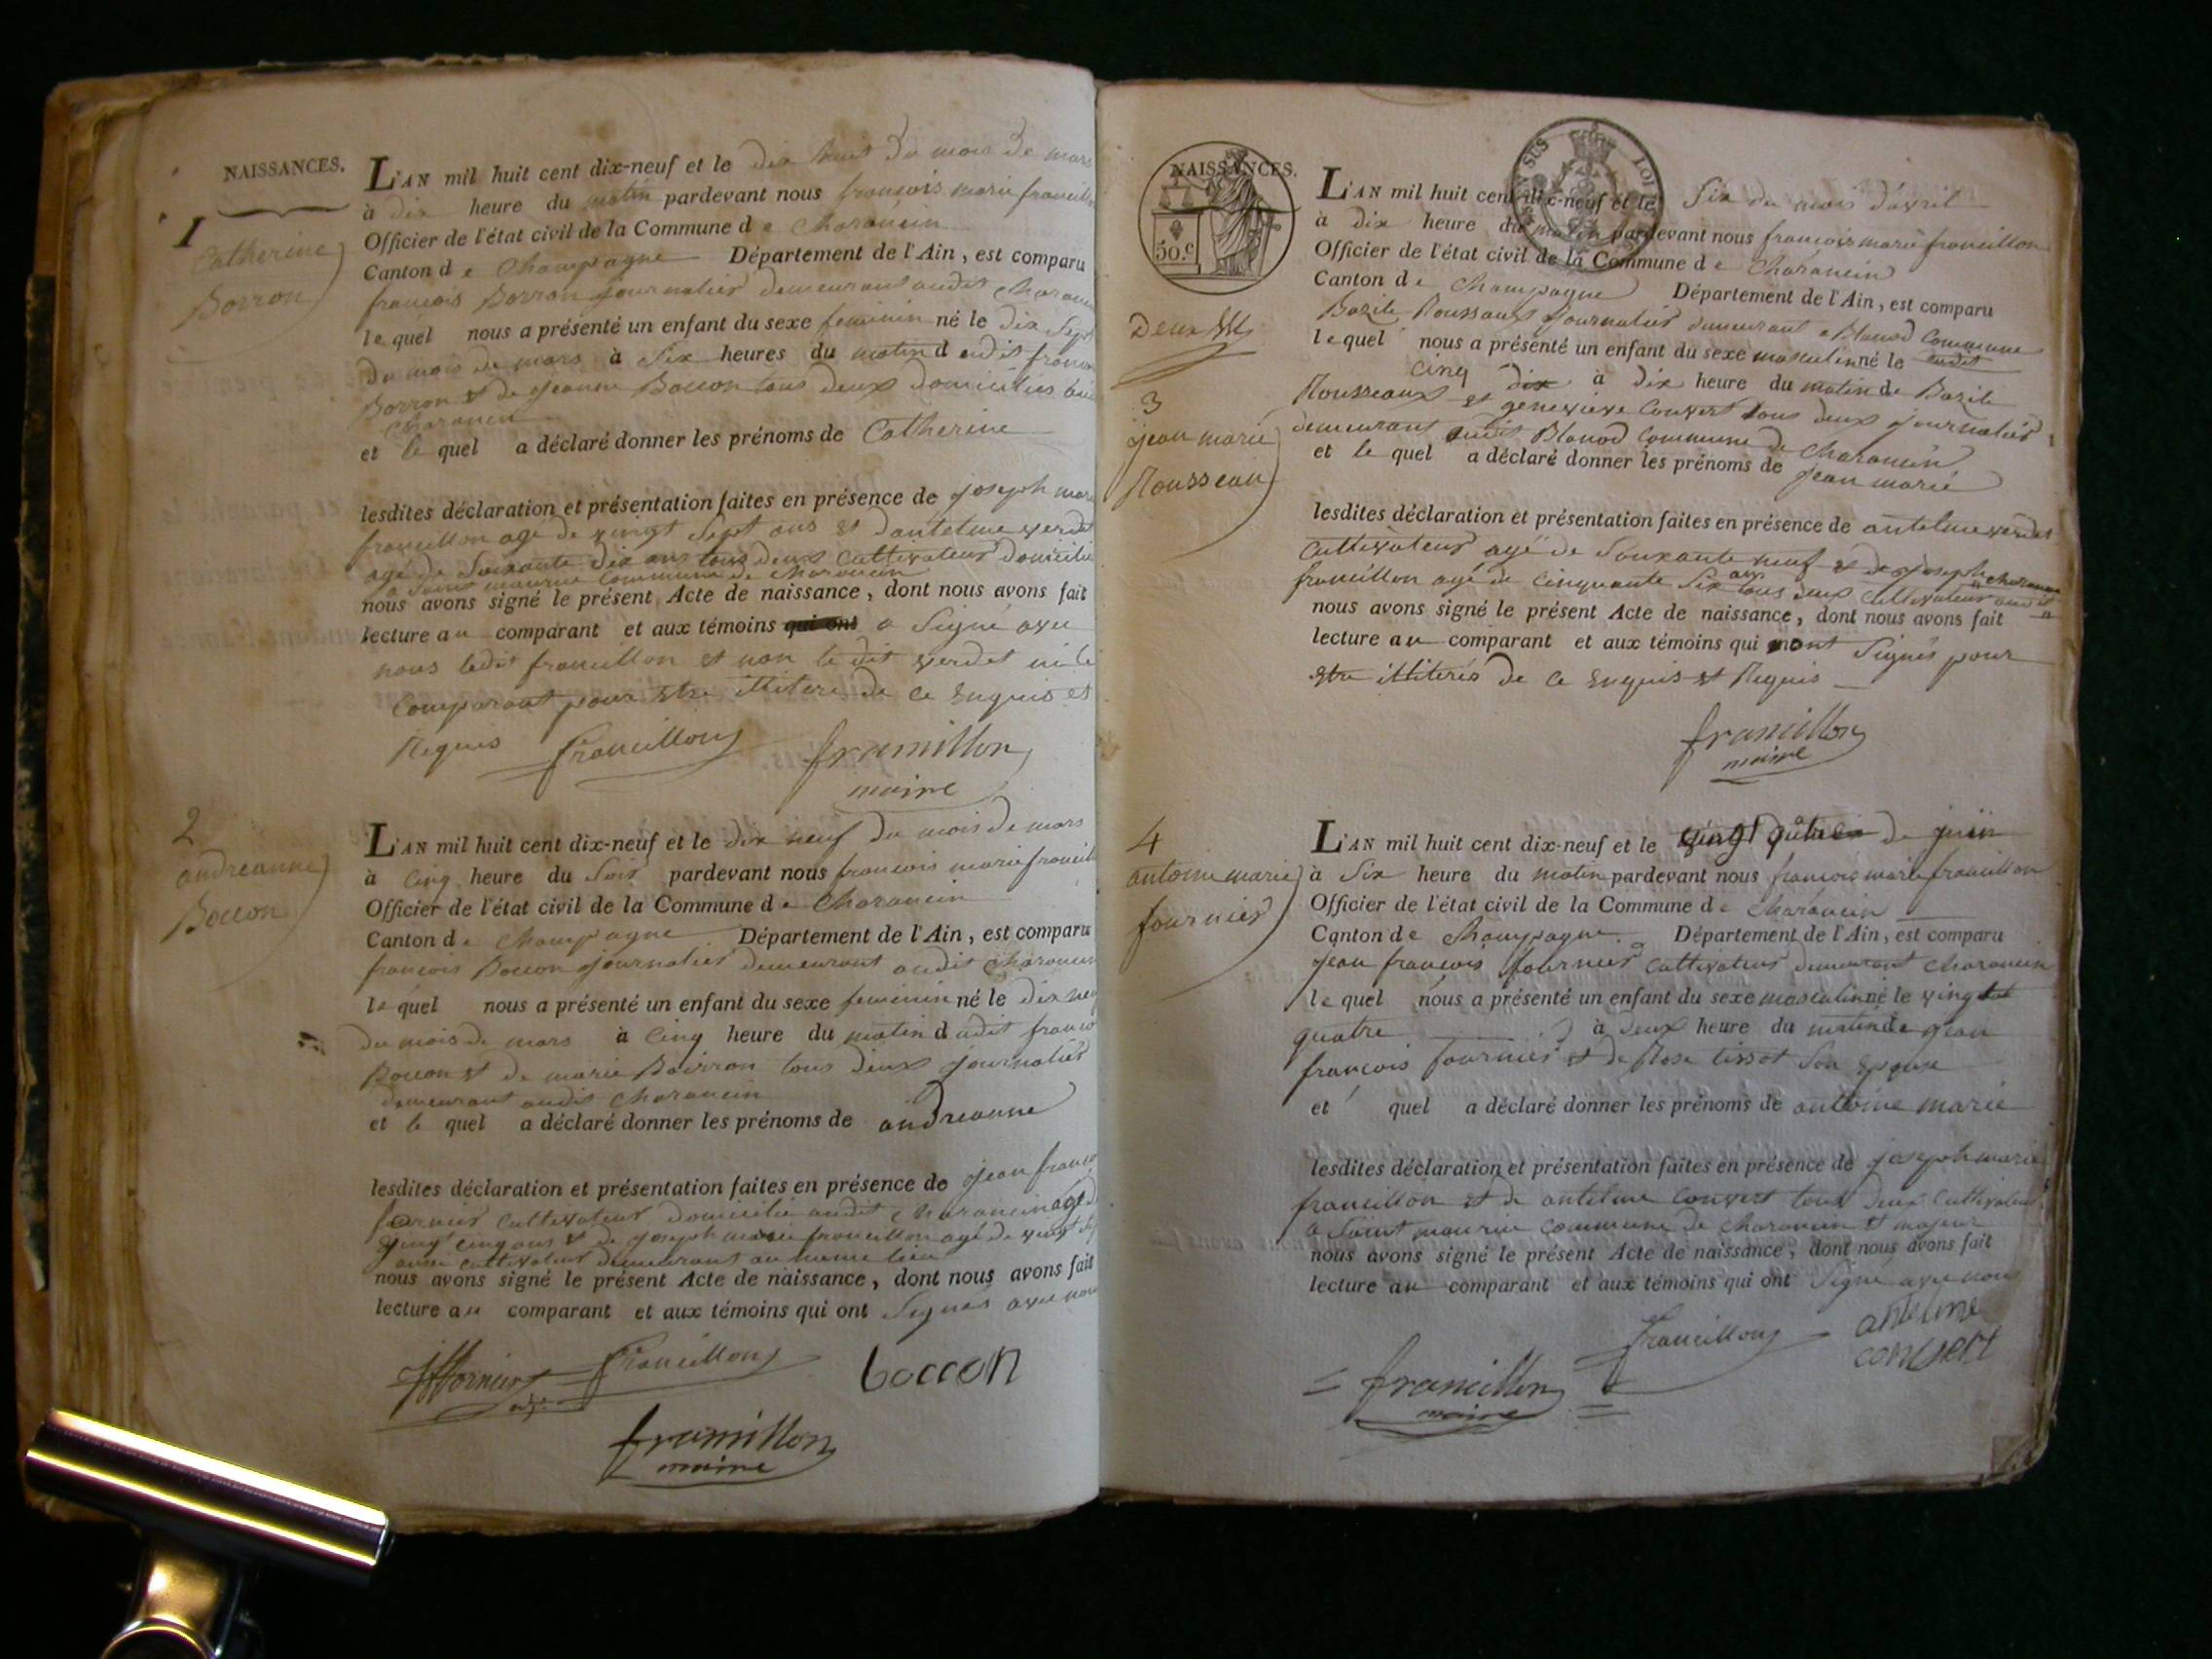 NAISSANCES.
1
Catherine
Borron
L'AN mil huit cent dix-neuf et le dix huit du mois de mars
à dix heure du matin pardevant nous francois marie francill
Officier de l'état civil de la Commune d e Charancin
Canton d e Champagne Département de l'Ain, est comparu
francois Borron journalier demeurant audit Charanci
le quel nous a présenté un enfant du sexe feminin né le dix Sept
du mois de mars à Six heures du matin d udit francoi
Borron et de jeanne Boccon tous deux domicilies
Charancin
et le quel a déclaré donner les prénoms de Catherine
lesdites déclaration et présentation faites en présence de joseph mari
francillon agé de vingt Sept ans et dantelme verdet
agé de Soixante dix ans tous deux Cultivateur domicilie
a Saint maurice Commune de Charancin
nous avons signé le présent Acte de naissance, dont nous avons fait
lecture au comparant et aux témoins qui ont a Signé avec
nous ledit francillon et non le dit verdet ni le
Comparant pour Etre illiteré de ce Enquis et
Requis francillon francillon
maire
2
andreanne
Boccon
L'AN mil huit cent dix-neuf et le dix neuf du mois de mars
à Cinq heure du Soir pardevant nous francois marie francill
Officier de l'état civil de la Commune d e Charancin
Canton d e Champagne Département de l'Ain, est comparu
francois Boccon journalier demeurant audit Charancin
le quel nous a présenté un enfant du sexe feminin né le dix neu
du mois de mars à Cinq heure du matin d udit franco
Boccon et de marie Boirron tous deux journalier
demeurant audit Charancin
et le quel a déclaré donner les prénoms de andreanne
lesdites déclaration et présentation faites en présence de jean franco
fornier Cultivateur domicilié audit Charancin agé d
vingt cinq ans et de joseph marie francillon agé de vingt Se
annee Cultivateur demeurant au meme lieu
nous avons signé le présent Acte de naissance, dont nous avons fait
lecture au comparant et aux témoins qui ont Signés avec nou
jffornier francillon boccon
francillon
maire
NAISSANCES.
50.c
SUS LOI
Deux
3
jean marie
Rousseau
L'AN mil huit cent dix-neuf et le Six du mois d'avril
à dix heure du matin pardevant nous francois marie francillon
Officier de l'état civil de la Commune d e Charancin
Canton d e Champagne Département de l'Ain, est comparu
Bazile Roussaux journalier demeurant a Blanod Commune
le quel nous a présenté un enfant du sexe masculin né le dudit
Cinq dix à dix heure du matin de Bazile
Rousseaux et genevieve Convert tous deux journalier
demeurant audit Blanod Commune de Charancin
et le quel a déclaré donner les prénoms de jean marie
lesdites déclaration et présentation faites en présence de antelme verdet
Cultivateur agé de Soixante neuf et de joseph
francillon agé de Cinquante Six ans tous deux Cultivateur audit Charancin
nous avons signé le présent Acte de naissance, dont nous avons fait
lecture au comparant et aux témoins qui nont Signés pour
Etre illiterés de ce Enquis et Requis
francillon
maire
4
antoine marie
fournier
L'AN mil huit cent dix-neuf et le vingt quatre de juin
à Six heure du matin pardevant nous francois marie francillon
Officier de l'état civil de la Commune d e Charancin
Canton de Champagne. Département de l'Ain, est comparu
jean francois fournier Cultivateur demeurant Charancin
le quel nous a présenté un enfant du sexe masculin né le vingt
quatre à deux heure du matin de jean
francois fournier et de Rose tissot Son Epouse
et quel a déclaré donner les prénoms de antoine marie
lesdites déclaration et présentation faites en présence de joseph marie
francillon et de antelme Convert tous deux Cultivateur
a Saint maurice Commune de Charancin et majeur
nous avons signé le présent Acte de naissance, dont nous avons fait
lecture au comparant et aux témoins qui ont Signé avec nous
francillon antelme
convert
francillon
maire